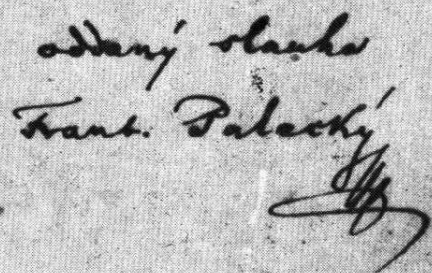 oddaný sluha
Frant. Palacký